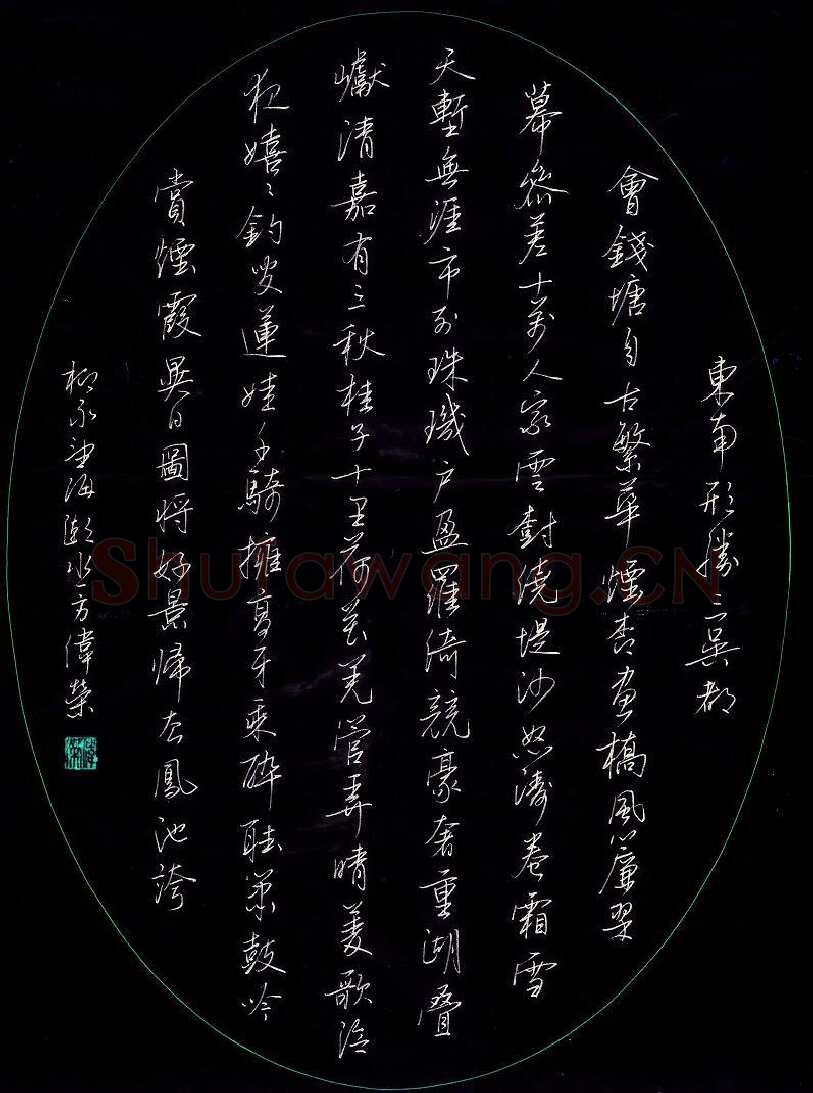 東南形勝三吳都
會錢塘自古繁華煙杏畫橋風簾翠
幕參差十萬人家雲樹繞堤沙怒濤卷霜雪
天塹無涯市列珠璣戶盈羅綺競豪奢重湖疊
巘清嘉有三秋桂子十里荷花羌管弄晴菱歌泛
夜嬉〻釣叟蓮娃千騎擁高牙乘醉聽簫鼓吟
賞煙霞異日圖將好景歸去鳳池誇
柳永望海潮 方偉榮
ShufaWang.CN